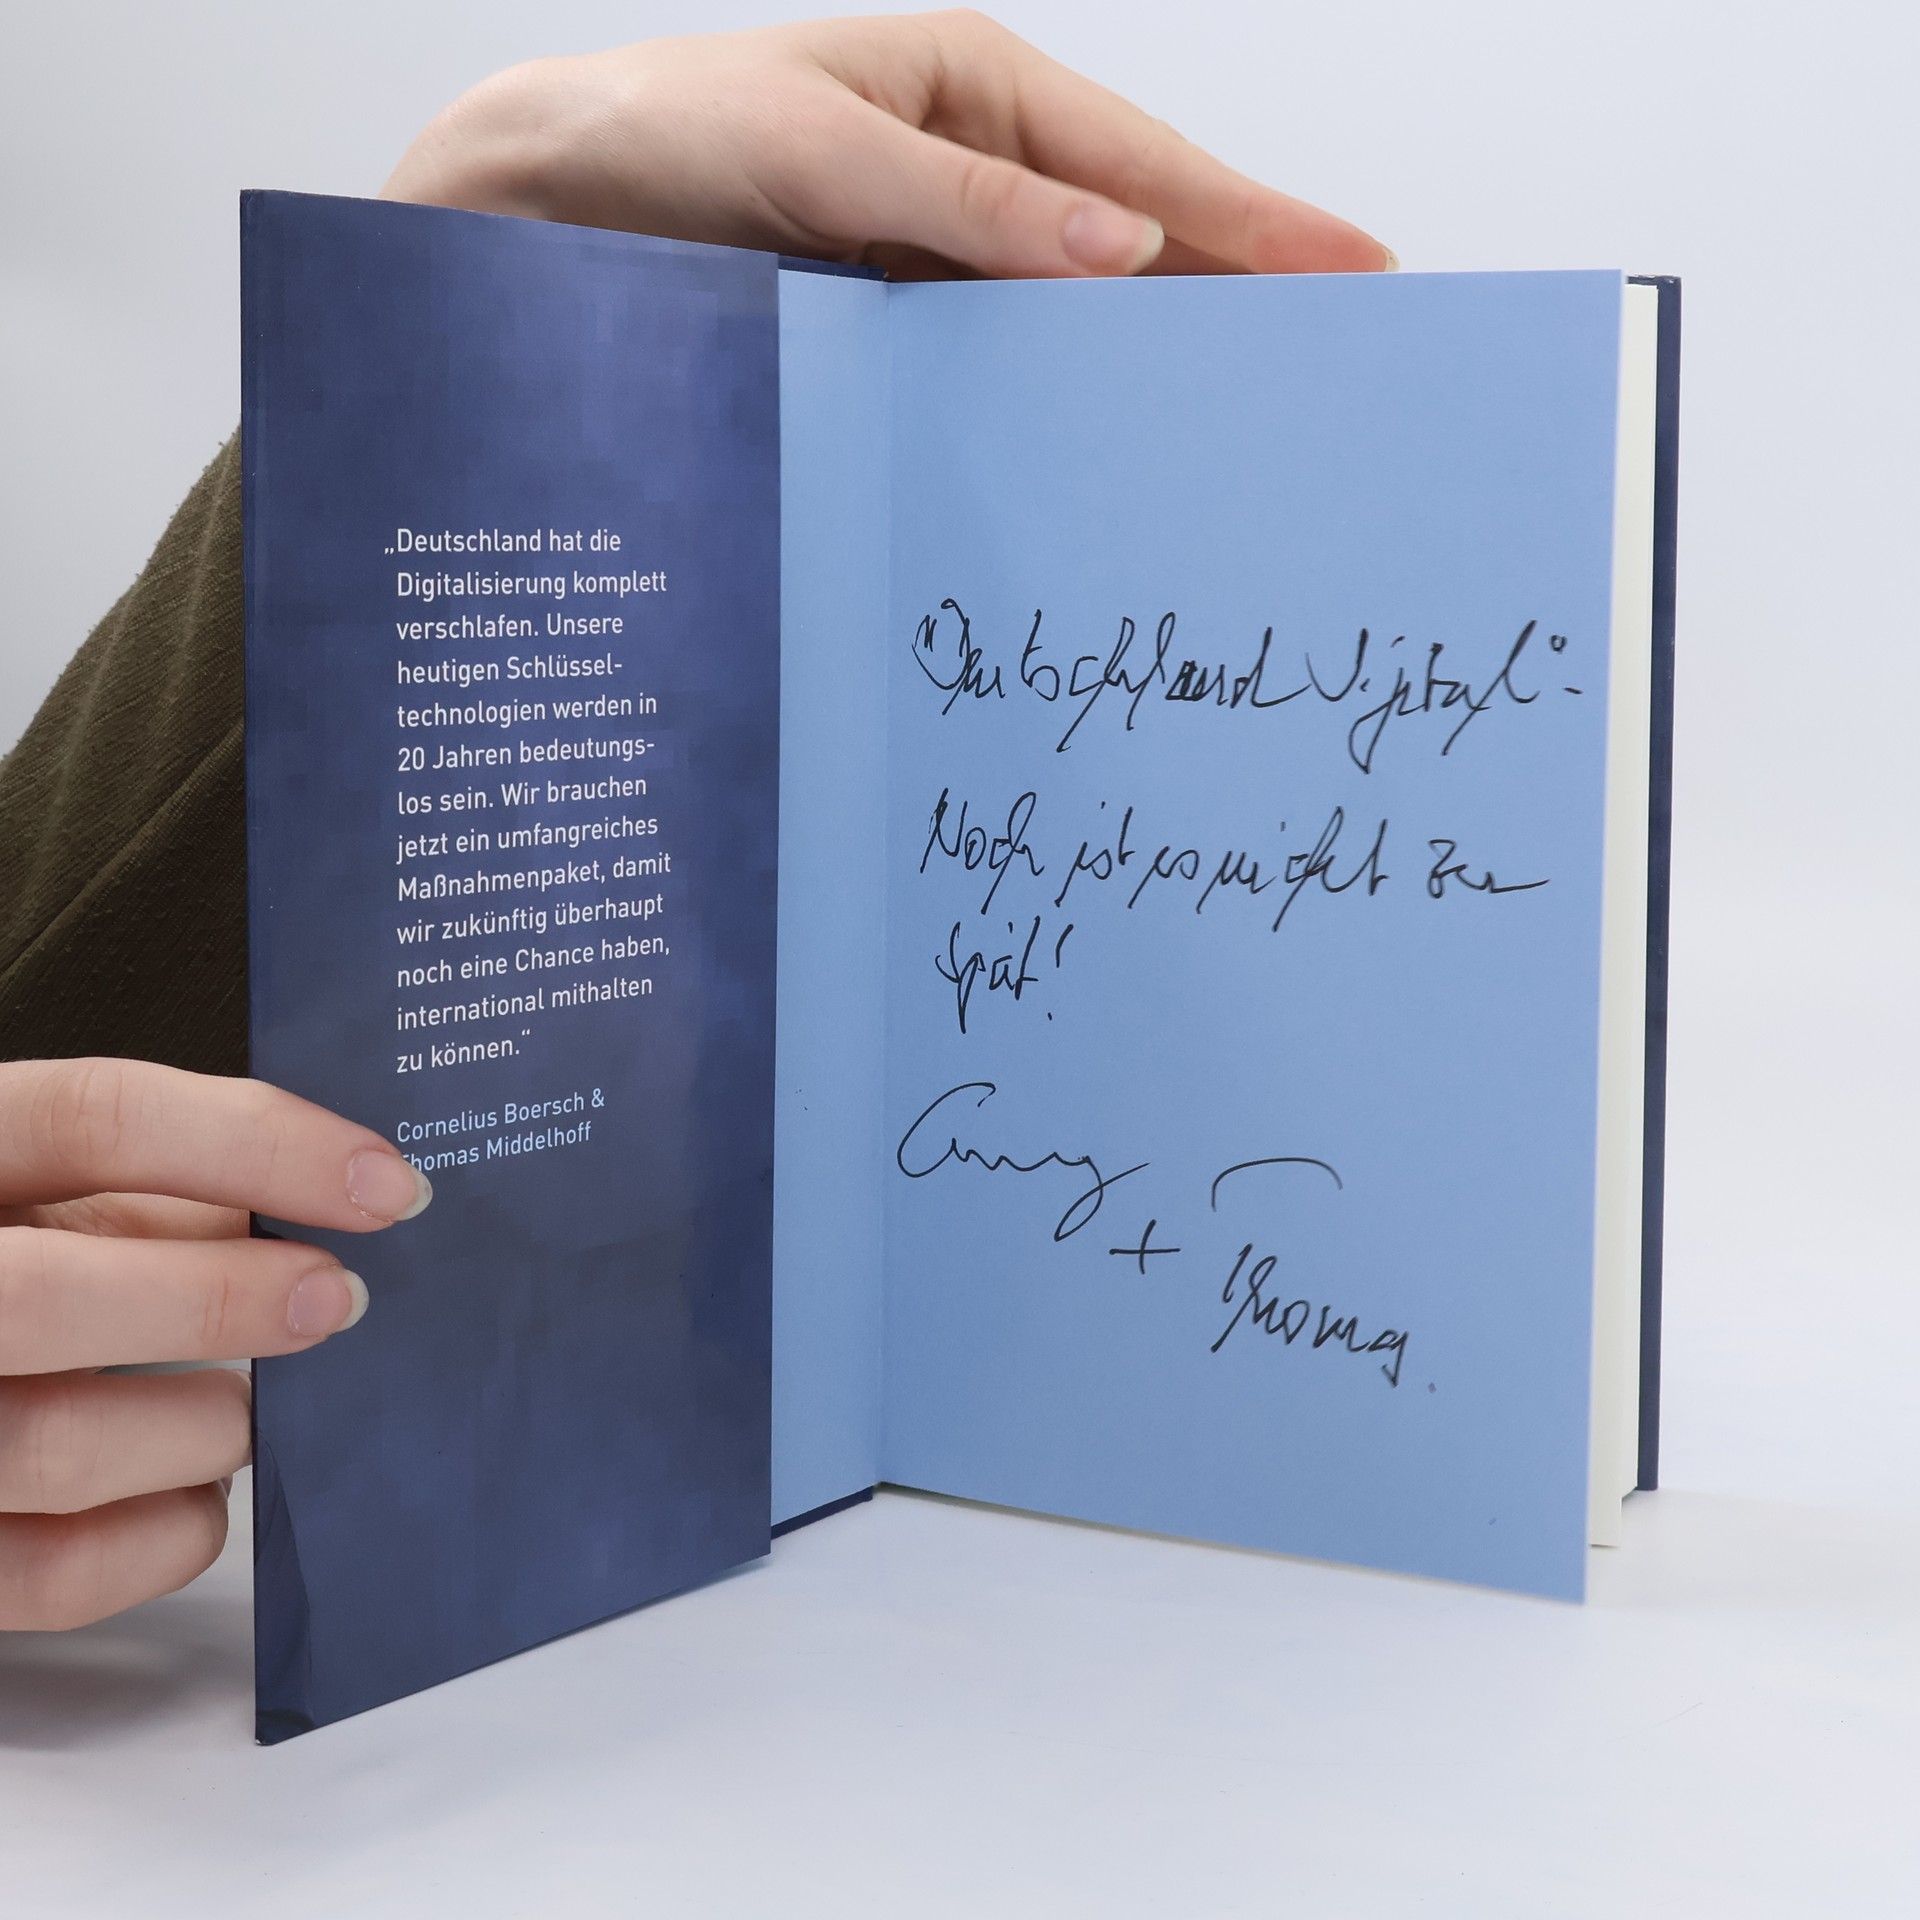 „Deutschland hat die
Digitalisierung komplett
verschlafen. Unsere
heutigen Schlüssel-
technologien werden in
20 Jahren bedeutungs-
los sein. Wir brauchen
jetzt ein umfangreiches
Maßnahmenpaket, damit
wir zukünftig überhaupt
noch eine Chance haben,
international mithalten
zu können.“
Cornelius Boersch &
Thomas Middelhoff
"Deutschland Digital" -
Noch ist es nicht zu
spät!
+
Thomas